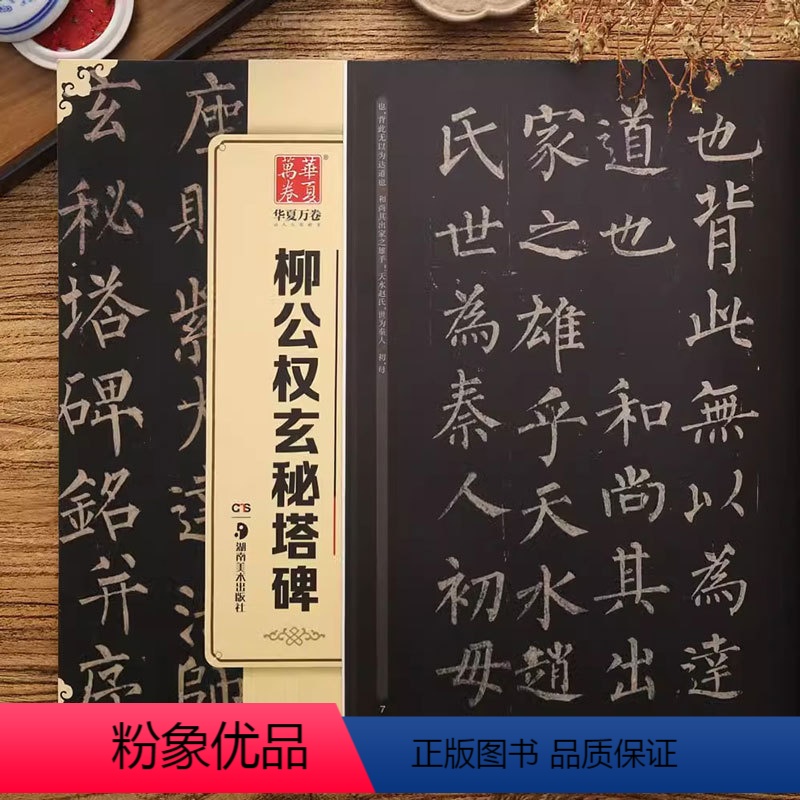 也背此無以為達
道也 和尚其出
家之雄乎天水趙
氏世為秦人初毋
也。背此无以为达道也 和尚其出家之雄乎！天水赵氏，世为秦人 初，母
7
華夏萬卷®
华夏万卷
柳公权玄秘塔碑
CTS
湖南美术出版社
座賜紫大達法師
玄秘塔碑銘并序
粉象优品
正版图书 品质保证